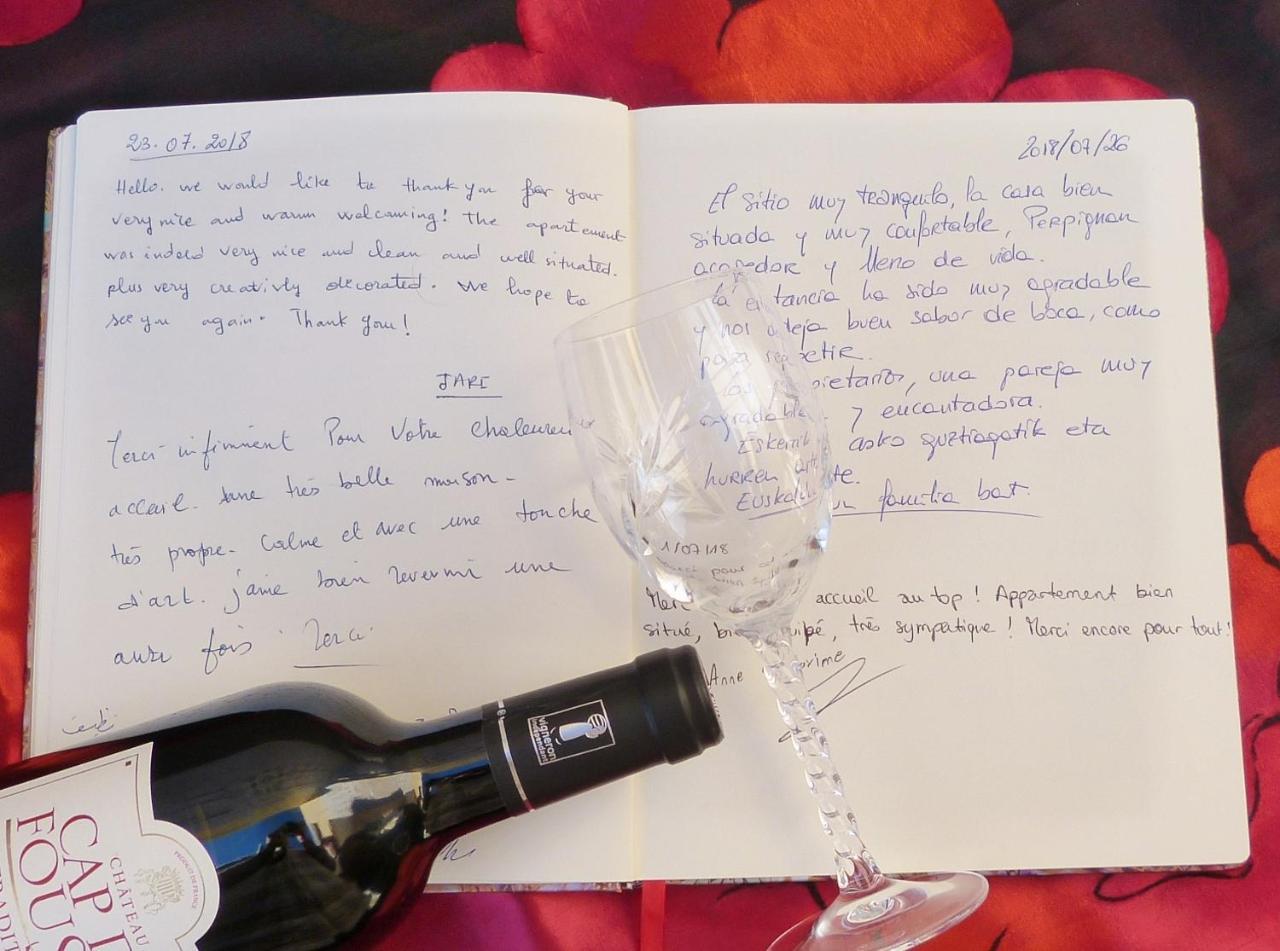 23.07.2018
Hello. we would like to thank you for your
very nice and warm welcoming! the apartement
was indeed very nice and clean and well situated.
plus very creativly decorated. We hope to
see you again. Thank you!
JARI
Merci infiniment Pour Votre chaleureux
accueil. une très belle maison-
très propre. Calme et avec une touche
d'art. j'aime bien revenir une
autre fois. Merci
2018/07/26
El sitio muy tranquilo, la casa bien
situada y muy confortable, Perpignan
acogedor y lleno de vida.
La estancia ha sido muy agradable
y nos deja buen sabor de boca, como
para repetir.
Los propietarios, una pareja muy
agradable y encantadora.
Eskerrik asko guztiagatik eta
hurren arte.
Euskal familia bat.
1/07/18
Merci accueil au top! Appartement bien
situé, bien équipé, très sympatique! Merci encore pour tout!
Anne
vigneron
indépendant
CHÂTEAU
CAP
FOUS
TRADIT
PRODUCT OF FRANCE